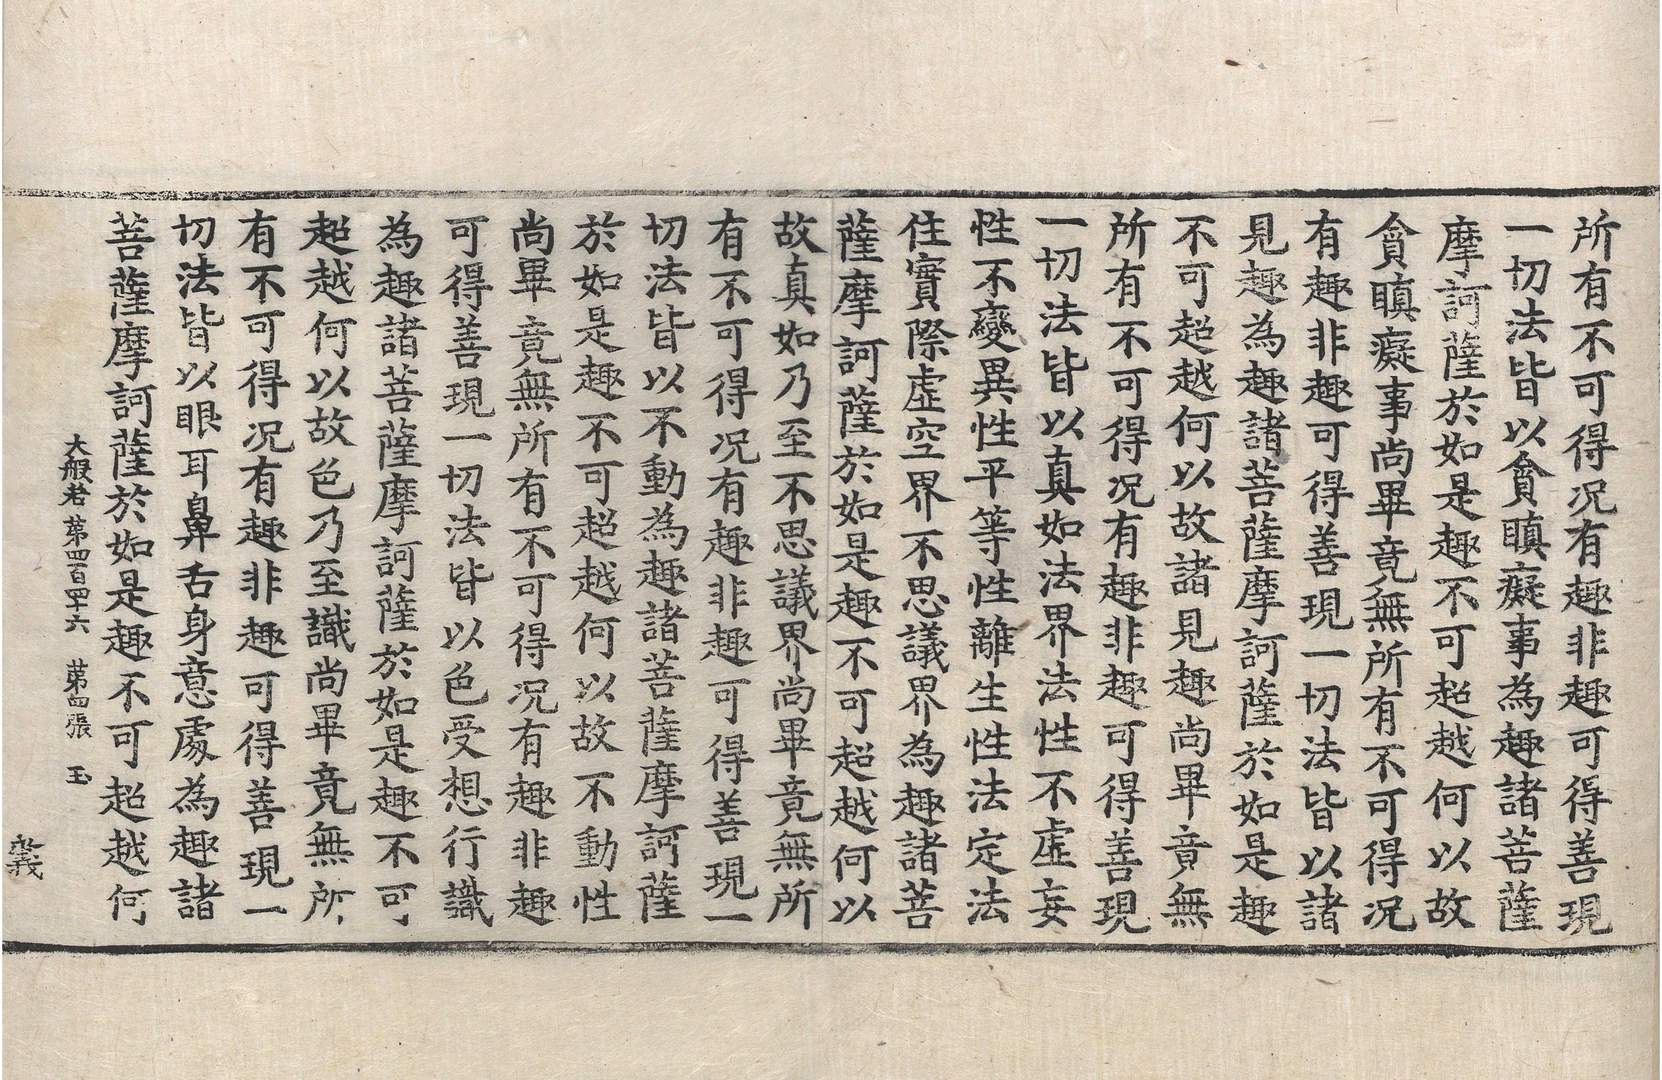 所有不可得况有趣非趣可得善現
一切法皆以貪瞋癡事為趣諸菩薩
摩訶薩於如是趣不可超越何以故
貪瞋癡事尚畢竟無所有不可得况
有趣非趣可得善現一切法皆以諸
見趣為趣諸菩薩摩訶薩於如是趣
不可超越何以故諸見趣尚畢竟無
所有不可得况有趣非趣可得善現
一切法皆以真如法界法性不虛妄
性不變異性平等性離生性法定法
住實際虛空界不思議界為趣諸菩
薩摩訶薩於如是趣不可超越何以
故真如乃至不思議界尚畢竟無所
有不可得况有趣非趣可得善現一
切法皆以不動為趣諸菩薩摩訶薩
於如是趣不可超越何以故不動性
尚畢竟無所有不可得况有趣非趣
可得善現一切法皆以色受想行識
為趣諸菩薩摩訶薩於如是趣不可
超越何以故色乃至識尚畢竟無所
有不可得况有趣非趣可得善現一
切法皆以眼耳鼻舌身意處為趣諸
菩薩摩訶薩於如是趣不可超越何
大般若 第四百四十六 第四張 玉